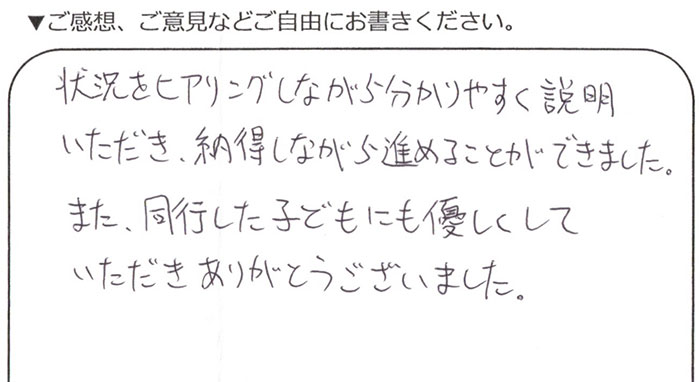 ▼ご感想、ご意見などご自由にお書きください。
状況をヒアリングしながら分かりやすく説明
いただき、納得しながら進めることができました。
また、同行した子どもにも優しくして
いただきありがとうございました。